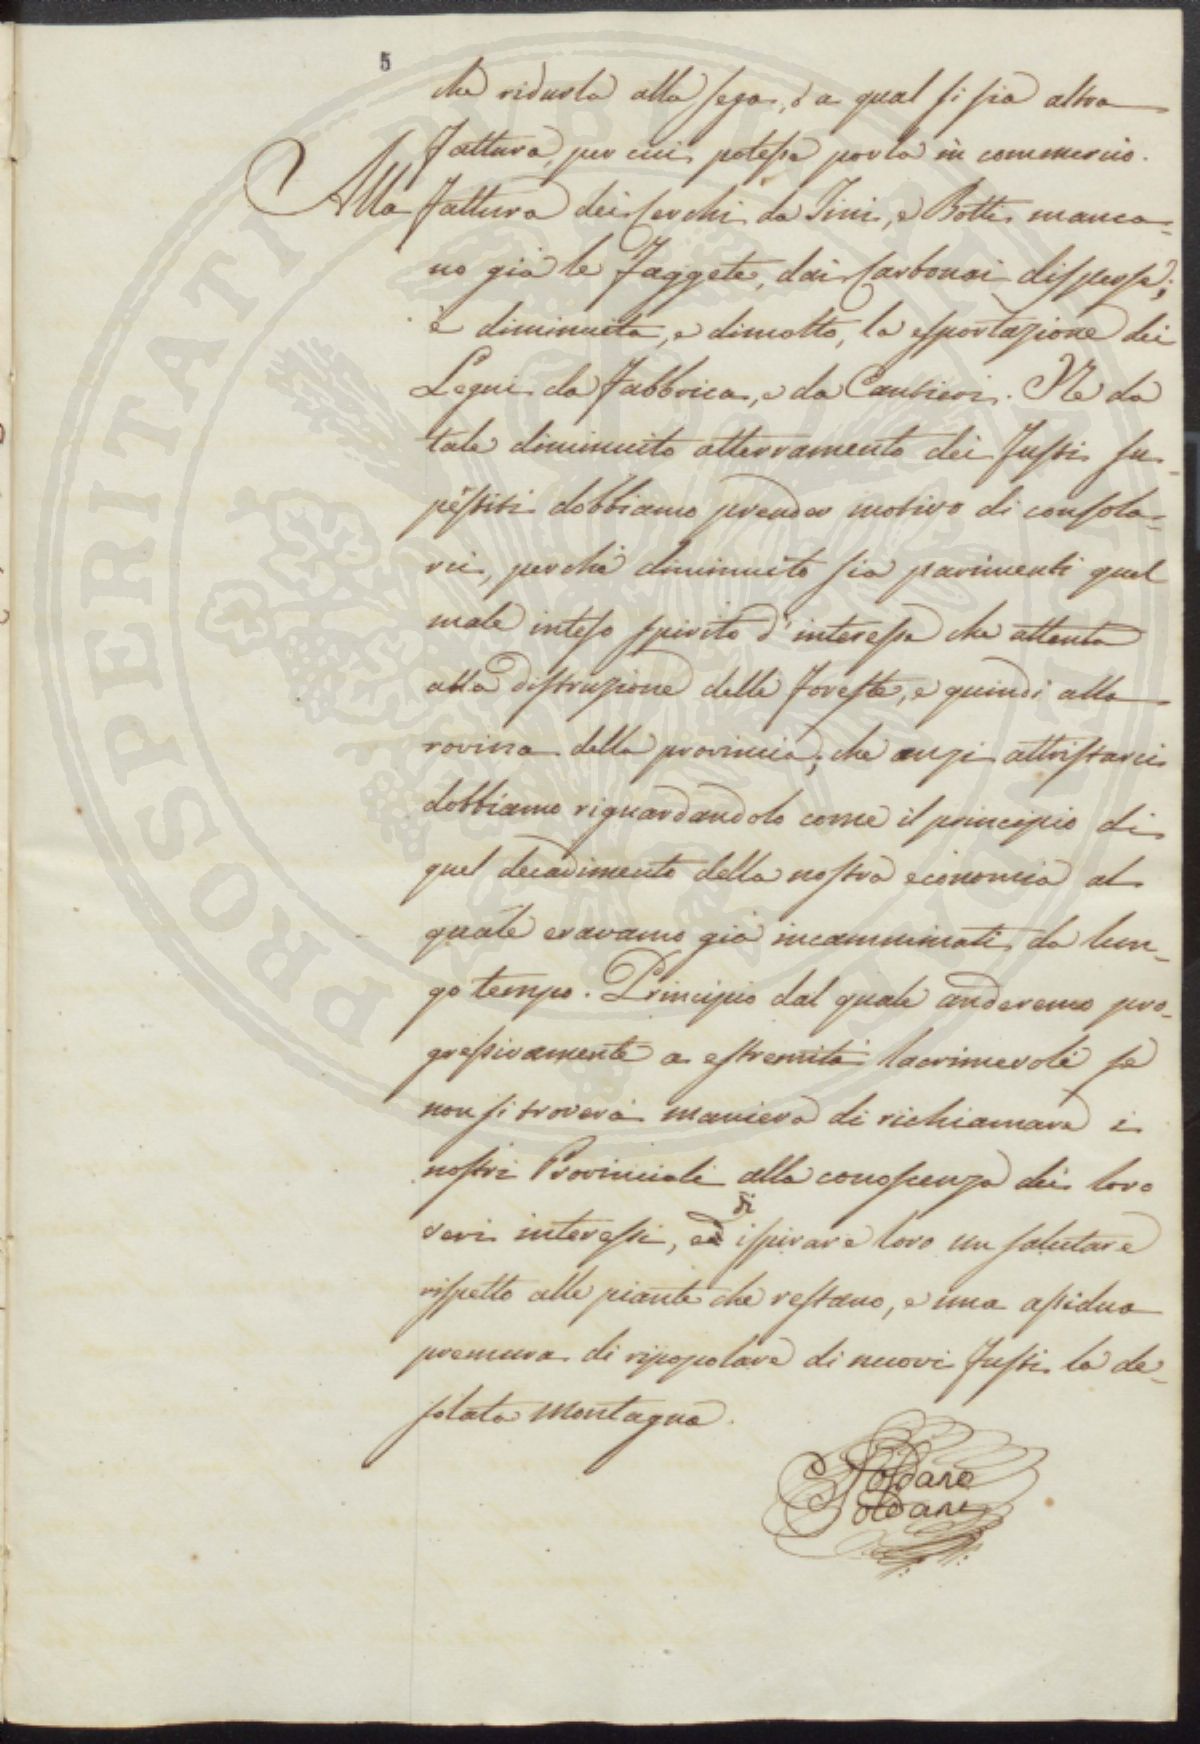 5
che ridurla alla sega, o a qual si sia altra
fattura, per cui potesse porla in commercio.
Alla fattura dei Cerchi da Tini, e Botti manca-
no già le Faggete, dai Carbonai disperse;
è diminuita, e dimolto, la esportazione dei
Legni da Fabbrica, e da Cantieri. Ne da
tale diminuito atterramento dei Fusti su-
pestiti dobbiamo prender motivo di consola-
rci, perchè diminuito sia parimenti quel
male inteso spirito d'interesse che attenta
alla distruzione delle Foreste, e quindi alla
rovina della provincia; che anzi attristarci
dobbiamo riguardandolo come il principio di
quel decadimento della nostra economia al
quale eravamo già incamminati da lun-
go tempo. Principio dal quale anderemo pro-
gressivamente a estremità lacrimevoli se
non si troverà maniera di richiamare i
nostri Provinciali alla conoscenza dei loro
veri interessi, e di ispirare loro un salutare
rispetto alle piante che restano, e una assidua
premura di ripopolare di nuovi Fusti la de-
solata Montagna.
Soldano
Soldani
PROSPERITATI PUBLICAE